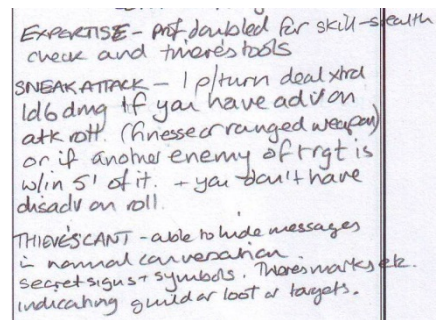 EXPERTISE - prof doubled for skill - stealth
check and thieves tools
SNEAK ATTACK - 1 p/turn deal xtra
1d6 dmg if you have adv on
atk roll. (finesse or ranged weapon)
or if another enemy of trgt is
w/in 5' of it. + you don't have
disadv on roll.
THIEVES CANT - able to hide messages
in normal conversation.
secret signs + symbols. Thieves marks etc.
indicating guild or loot or targets.